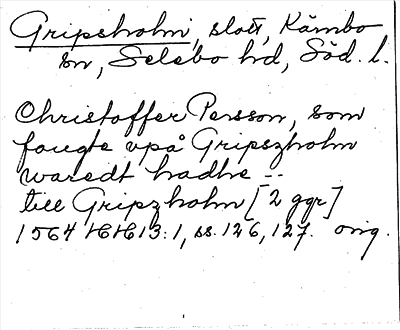 Gripsholm, slott, Kärnbo
sn, Selebo hd, Söd. l.
Christoffer Persson, som
fougte vpå Gripszholm
waredt hadhe --
till Gripzholm [2 ggr]
1564 HH 13:1, ss. 126, 127. orig.